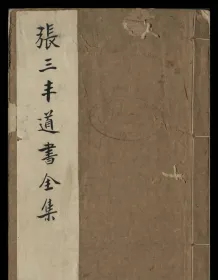 張三丰道書全集